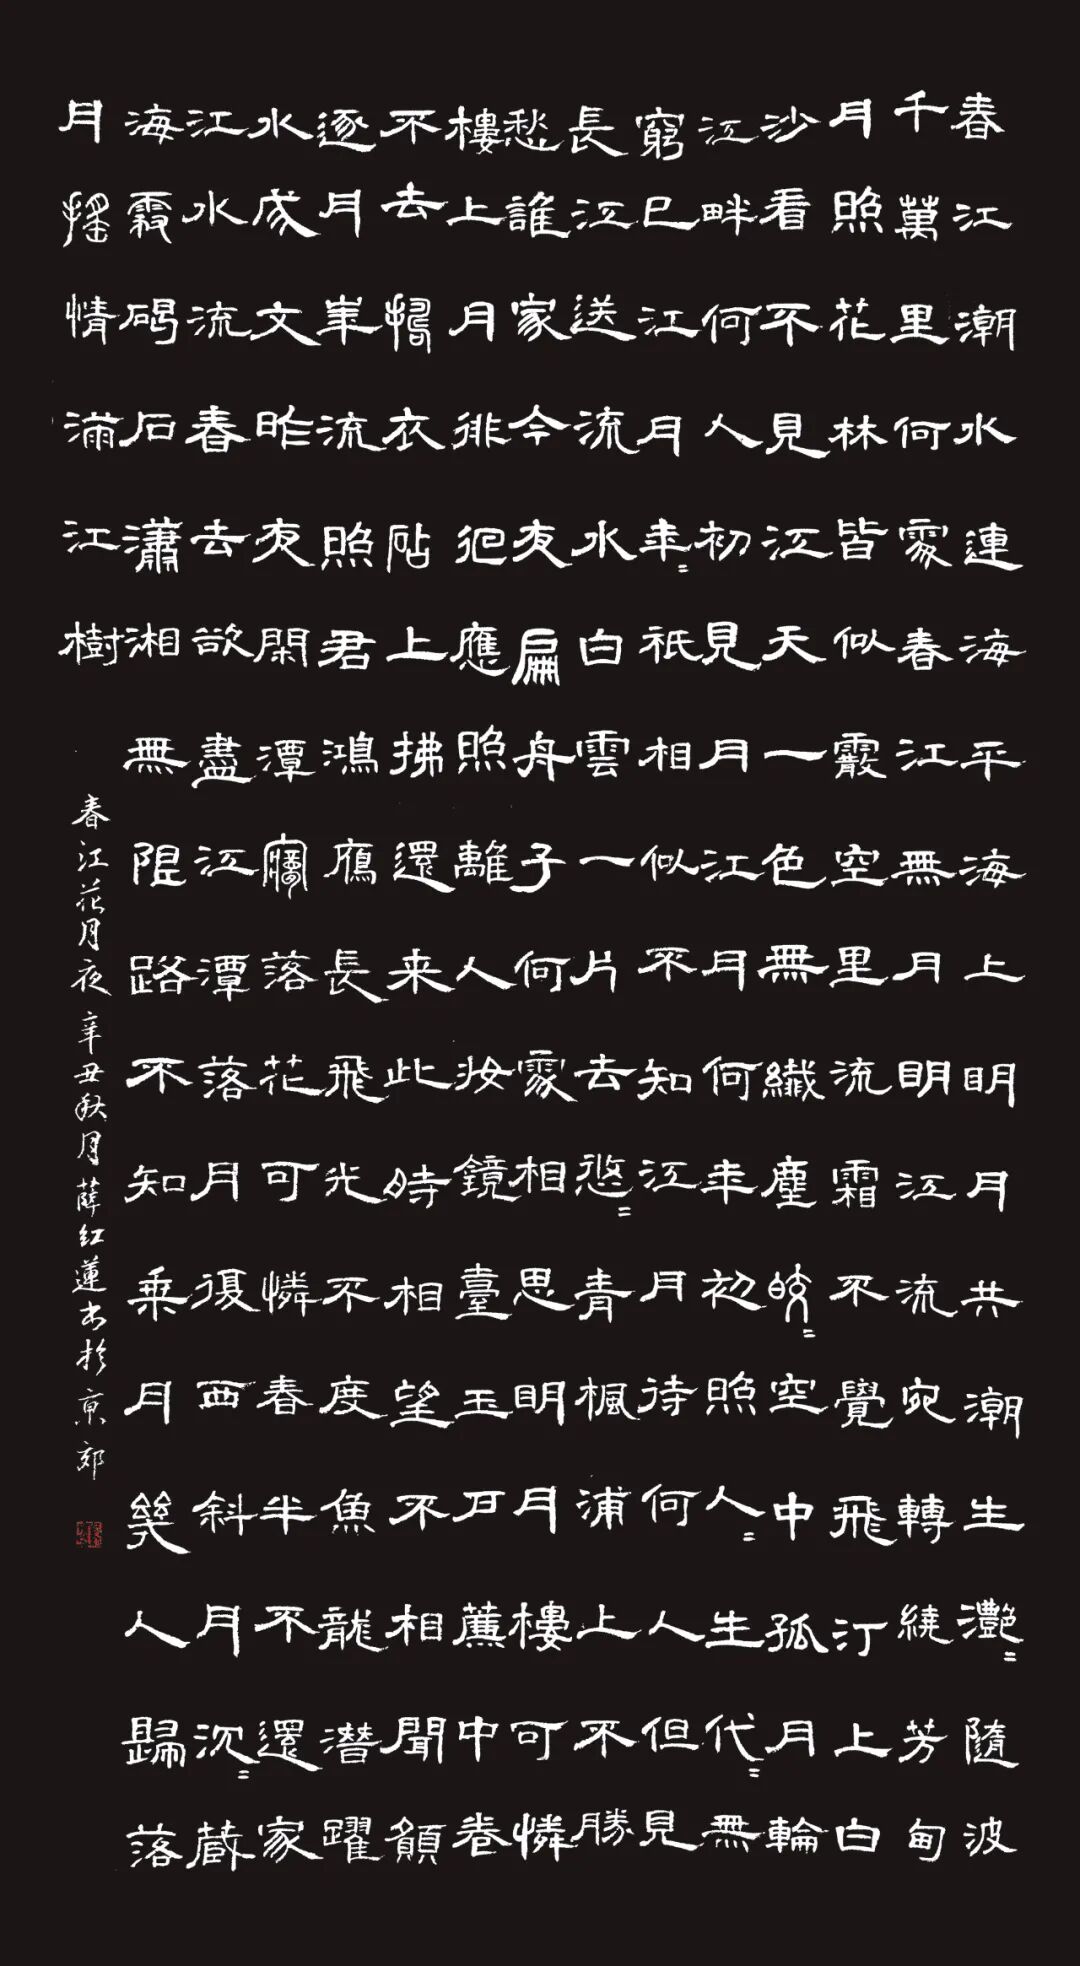 春江潮水連海平海上明月共潮生灧=隨波
千萬里何處春江無月明江流宛轉繞芳甸
月照花林皆似霰空里流霜不覺飛汀上白
沙看不見江天一色無纖塵皎=空中孤月輪
江畔何人初見月江月何年初照人=生代=無
窮已江月年=祇相似不知江月待何人但見
長江送流水白雲一片去悠=青楓浦上不勝
愁誰家今夜扁舟子何處相思明月樓可憐
樓上月徘徊應照離人妝鏡臺玉戶簾中卷
不去擣衣砧上拂還来此時相望不相聞願
逐月華流照君鴻雁長飛光不度魚龍潛躍
水成文昨夜閑潭夢落花可憐春半不還家
江水流春去欲盡江潭落月復西斜月沉=藏
海霧碣石瀟湘無限路不知乘月幾人歸落
月搖情滿江樹
春江花月夜辛丑秋月薛紅蓮书於京郊